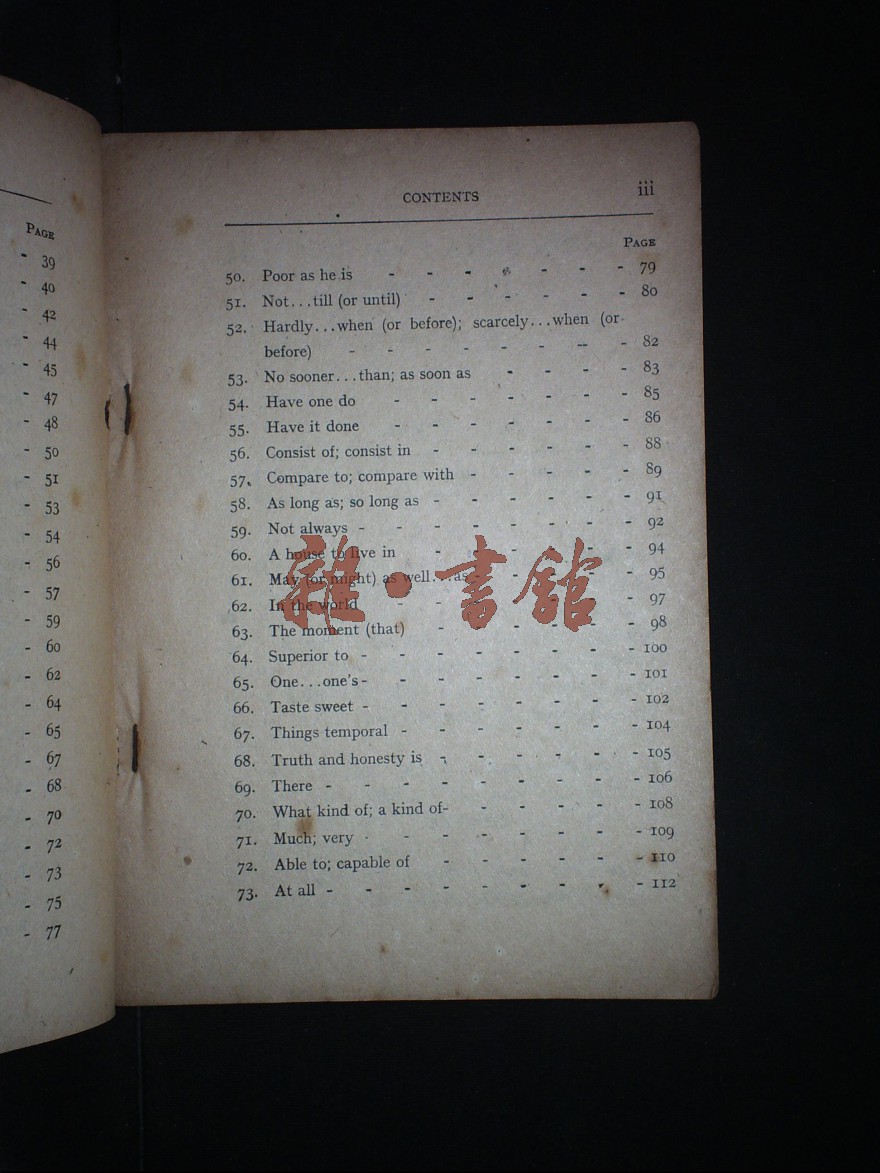 PAGE
- 39
- 40
- 42
- 44
- 45
- 47
- 48
- 50
- 51
- 53
- 54
- 56
- 57
- 59
- 60
- 62
- 64
- 65
- 67
- 68
- 70
- 72
- 73
- 75
- 77
CONTENTS iii
PAGE
50. Poor as he is - - - - - - - 79
51. Not...till (or until) - - - - - - 80
52. Hardly...when (or before); scarcely...when (or
before) - - - - - - - - 82
53. No sooner...than; as soon as - - - - 83
54. Have one do - - - - - - - 85
55. Have it done - - - - - - - 86
56. Consist of; consist in - - - - - - 88
57. Compare to; compare with - - - - - 89
58. As long as; so long as - - - - - - 91
59. Not always - - - - - - - - 92
60. A house to live in - - - - - - 94
61. May (or might) as well...as - - - - - 95
62. In the world - - - - - - - 97
63. The moment (that) - - - - - - 98
64. Superior to - - - - - - - - 100
65. One...one's - - - - - - - - 101
66. Taste sweet - - - - - - - - 102
67. Things temporal - - - - - - - 104
68. Truth and honesty is - - - - - - 105
69. There - - - - - - - - - 106
70. What kind of; a kind of - - - - - - 108
71. Much; very - - - - - - - - 109
72. Able to; capable of - - - - - - 110
73. At all - - - - - - - - - 112
雜·書館